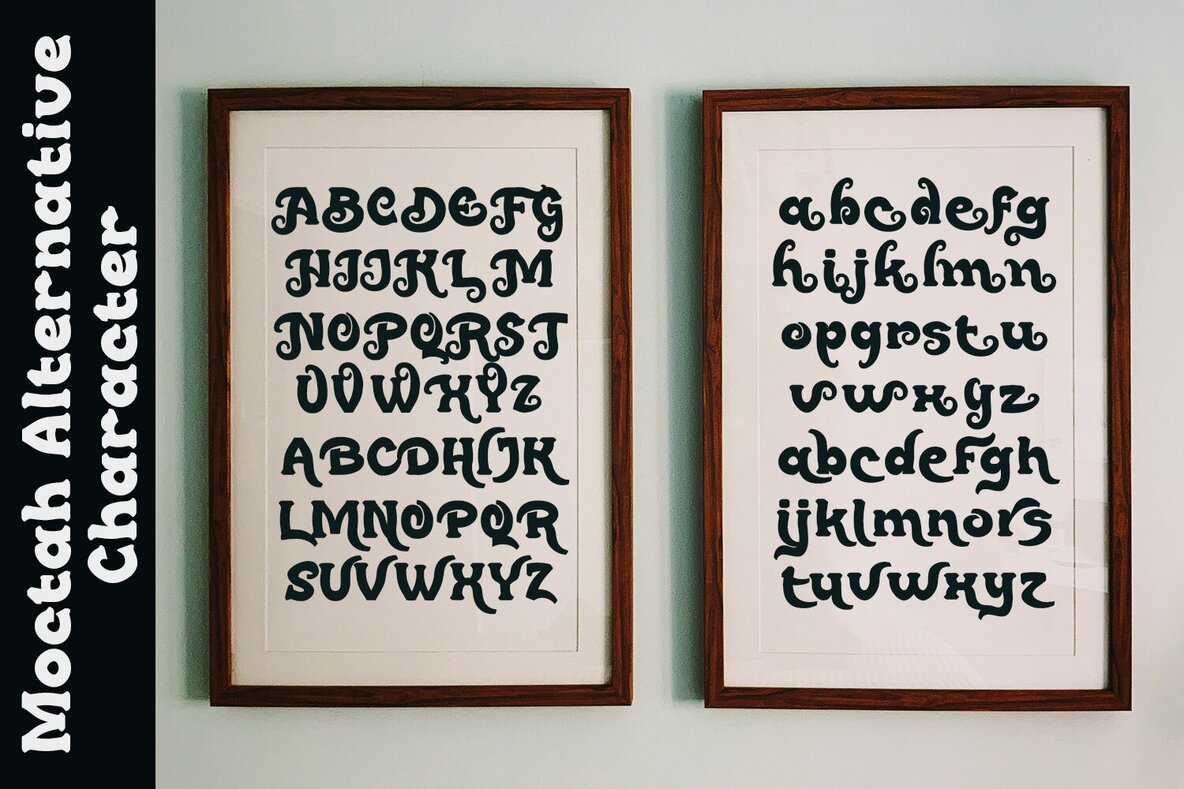 Moctah Alternative
Character
ABCDEFG
HIJKLM
NOPQRST
UVWXYZ
ABCDHIJK
LMNOPQR
SUVWXYZ
abcdefg
hijklmn
opqrstu
vwxyz
abcdefgh
ijklmnors
tuvwxyz